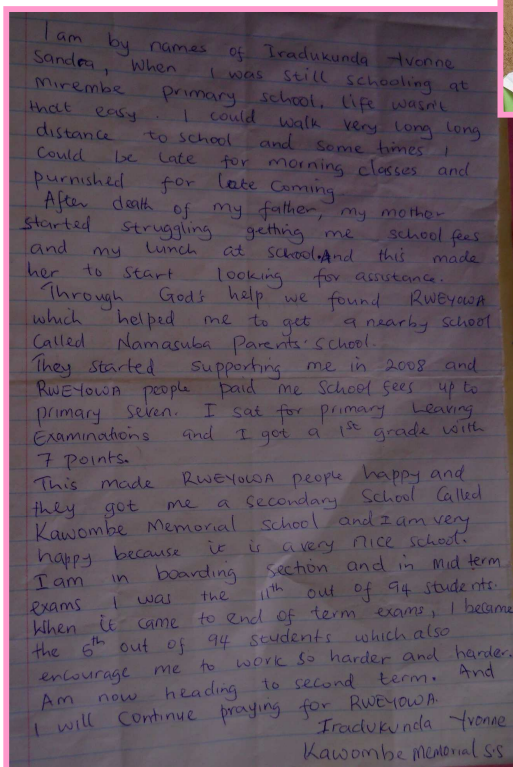 I am by names of Iradukunda Yvonne
Sandra, When I was still schooling at
Mirembe primary school, life wasn't
that easy. I could walk very long long
distance to school and some times I
could be late for morning classes and
purnished for late coming
After death of my father, my mother
started struggling getting me school fees
and my lunch at school. And this made
her to start looking for assistance.
Through God's help we found RWEYOWA
which helped me to get a nearby school
called Namasuba Parents' School.
They started supporting me in 2008 and
RWEYOWA people paid me School fees up to
primary seven. I sat for primary Leaving
Examinations and I got a 1st grade with
7 points.
This made RWEYOWA people happy and
they got me a secondary School Called
Kawombe Memorial school and I am very
happy because it is a very nice school.
I am in boarding section and in mid term
exams I was the 11th out of 94 students.
When it came to end of term exams, I became
the 6th out of 94 students which also
encourage me to work so harder and harder.
Am now heading to second term. And
I will continue praying for RWEYOWA.
Iradukunda Yvonne
Kawombe Memorial S.S